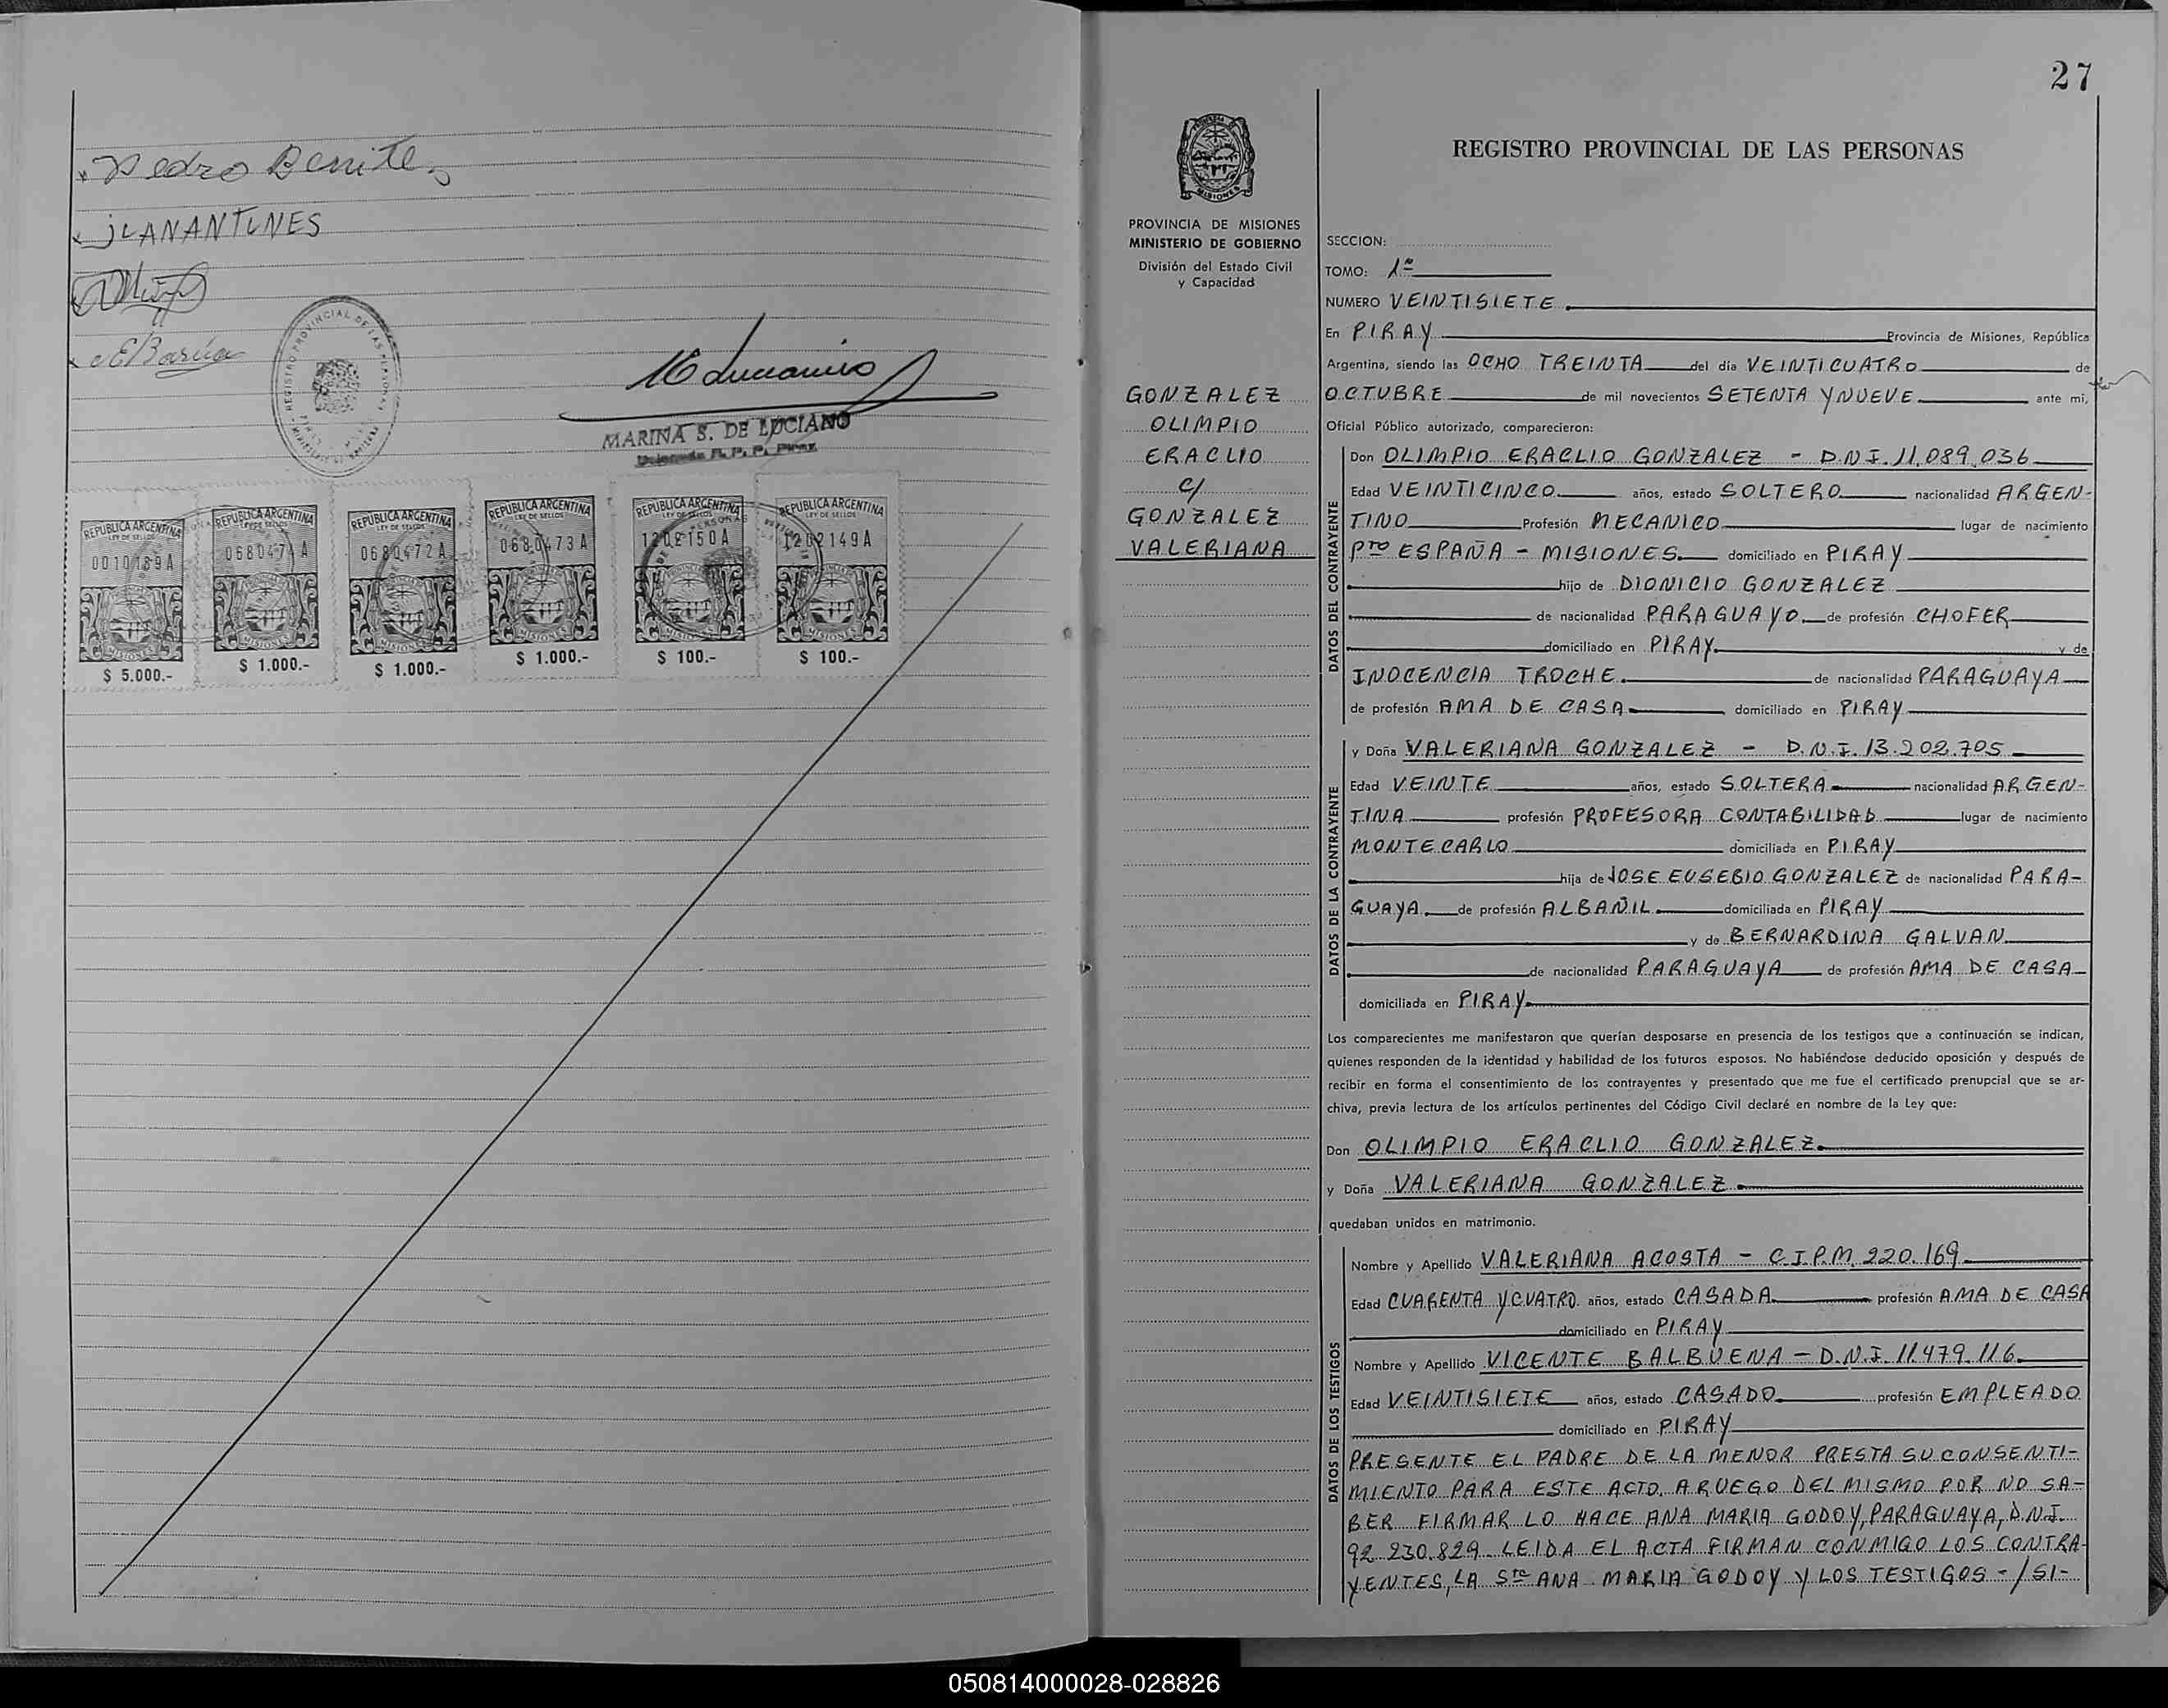 Pedro Benitez
JLANANTUNES
MARINA S. DE LUCIANO
Delegada R. P. P. Piray
REPUBLICA ARGENTINA
LEY DE SELLOS
0010189A
MISIONES
$ 5.000.-
REPUBLICA ARGENTINA
LEY DE SELLOS
068047 A
MISIONES
$ 1.000.-
REPUBLICA ARGENTINA
LEY DE SELLOS
0680472A
MISIONES
$ 1.000.-
REPUBLICA ARGENTINA
LEY DE SELLOS
0680473A
MISIONES
$ 1.000.-
REPUBLICA ARGENTINA
LEY DE SELLOS
1202150A
MISIONES
$ 100.-
REPUBLICA ARGENTINA
LEY DE SELLOS
1202149A
MISIONES
$ 100.-
27
PROVINCIA DE MISIONES
MINISTERIO DE GOBIERNO
División del Estado Civil
y Capacidad
GONZALEZ
OLIMPIO
ERACLIO
c/
GONZALEZ
VALERIANA
REGISTRO PROVINCIAL DE LAS PERSONAS
SECCION:
TOMO: 1º
NUMERO VEINTISIETE.
En PIRAY Provincia de Misiones, República
Argentina, siendo las OCHO TREINTA del día VEINTICUATRO de
OCTUBRE de mil novecientos SETENTA Y NUEVE. ante mi,
Oficial Público autorizado, comparecieron:
DATOS DEL CONTRAYENTE
Don OLIMPIO ERACLIO GONZALEZ - D.N.I. 11.089.036
Edad VEINTICINCO años, estado SOLTERO nacionalidad ARGEN-
TINO Profesión MECANICO lugar de nacimiento
Pto ESPAÑA - MISIONES. domiciliado en PIRAY
hijo de DIONICIO GONZALEZ
de nacionalidad PARAGUAYO. de profesión CHOFER
domiciliado en PIRAY. y de
INOCENCIA TROCHE. de nacionalidad PARAGUAYA
de profesión AMA DE CASA domiciliado en PIRAY
DATOS DE LA CONTRAYENTE
y Doña VALERIANA GONZALEZ - D.N.I. 13.202.705
Edad VEINTE años, estado SOLTERA nacionalidad ARGEN-
TINA profesión PROFESORA CONTABILIDAD lugar de nacimiento
MONTECARLO domiciliada en PIRAY
hija de JOSE EUSEBIO GONZALEZ de nacionalidad PARA-
GUAYA. de profesión ALBAÑIL domiciliada en PIRAY
y de BERNARDINA GALVAN
de nacionalidad PARAGUAYA de profesión AMA DE CASA
domiciliada en PIRAY.
Los comparecientes me manifestaron que querían desposarse en presencia de los testigos que a continuación se indican,
quienes responden de la identidad y habilidad de los futuros esposos. No habiéndose deducido oposición y después de
recibir en forma el consentimiento de los contrayentes y presentado que me fue el certificado prenupcial que se ar-
chiva, previa lectura de los artículos pertinentes del Código Civil declaré en nombre de la Ley que:
Don OLIMPIO ERACLIO GONZALEZ.
y Doña VALERIANA GONZALEZ.
quedaban unidos en matrimonio.
DATOS DE LOS TESTIGOS
Nombre y Apellido VALERIANA ACOSTA - C.I.P.M. 220.169
Edad CUARENTA Y CUATRO. años, estado CASADA profesión AMA DE CASA
domiciliado en PIRAY
Nombre y Apellido VICENTE BALBUENA - D.N.I. 11.479.116
Edad VEINTISIETE años, estado CASADO profesión EMPLEADO
domiciliado en PIRAY
PRESENTE EL PADRE DE LA MENOR PRESTA SU CONSENTI-
MIENTO PARA ESTE ACTO. A RUEGO DEL MISMO POR NO SA-
BER FIRMAR LO HACE ANA MARIA GODOY, PARAGUAYA, D.N.I.
92.230.829. LEIDA EL ACTA FIRMAN CONMIGO LOS CONTRA-
YENTES, LA Sta ANA MARIA GODOY Y LOS TESTIGOS -/SI-
050814000028-028826